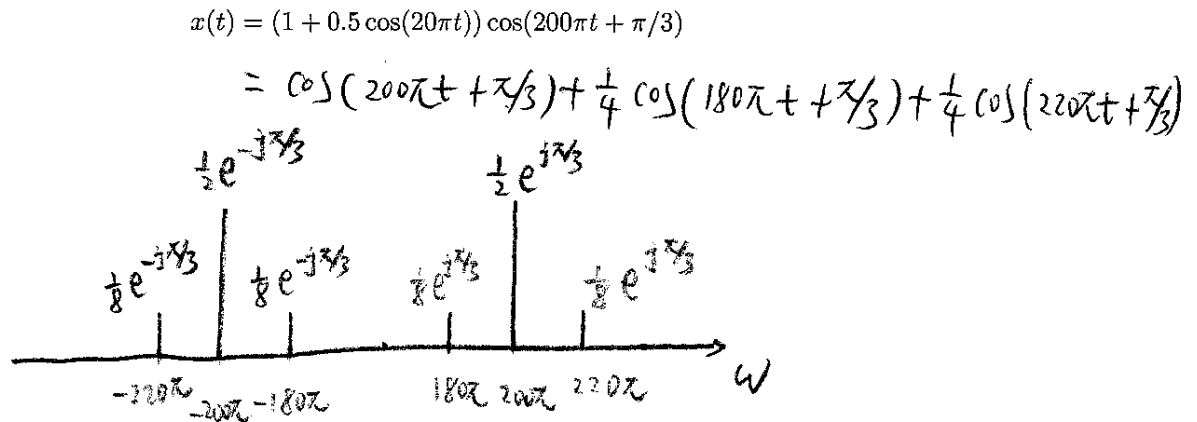 x(t) = (1 + 0.5 cos(20πt)) cos(200πt + π/3)
= cos(200πt + π/3) + 1/4 cos(180πt + π/3) + 1/4 cos(220πt + π/3)
1/2 e^{-jπ/3} 1/2 e^{jπ/3}
1/8 e^{-jπ/3} 1/8 e^{-jπ/3} 1/8 e^{jπ/3} 1/8 e^{jπ/3}
-220π -200π -180π 180π 200π 220π ω